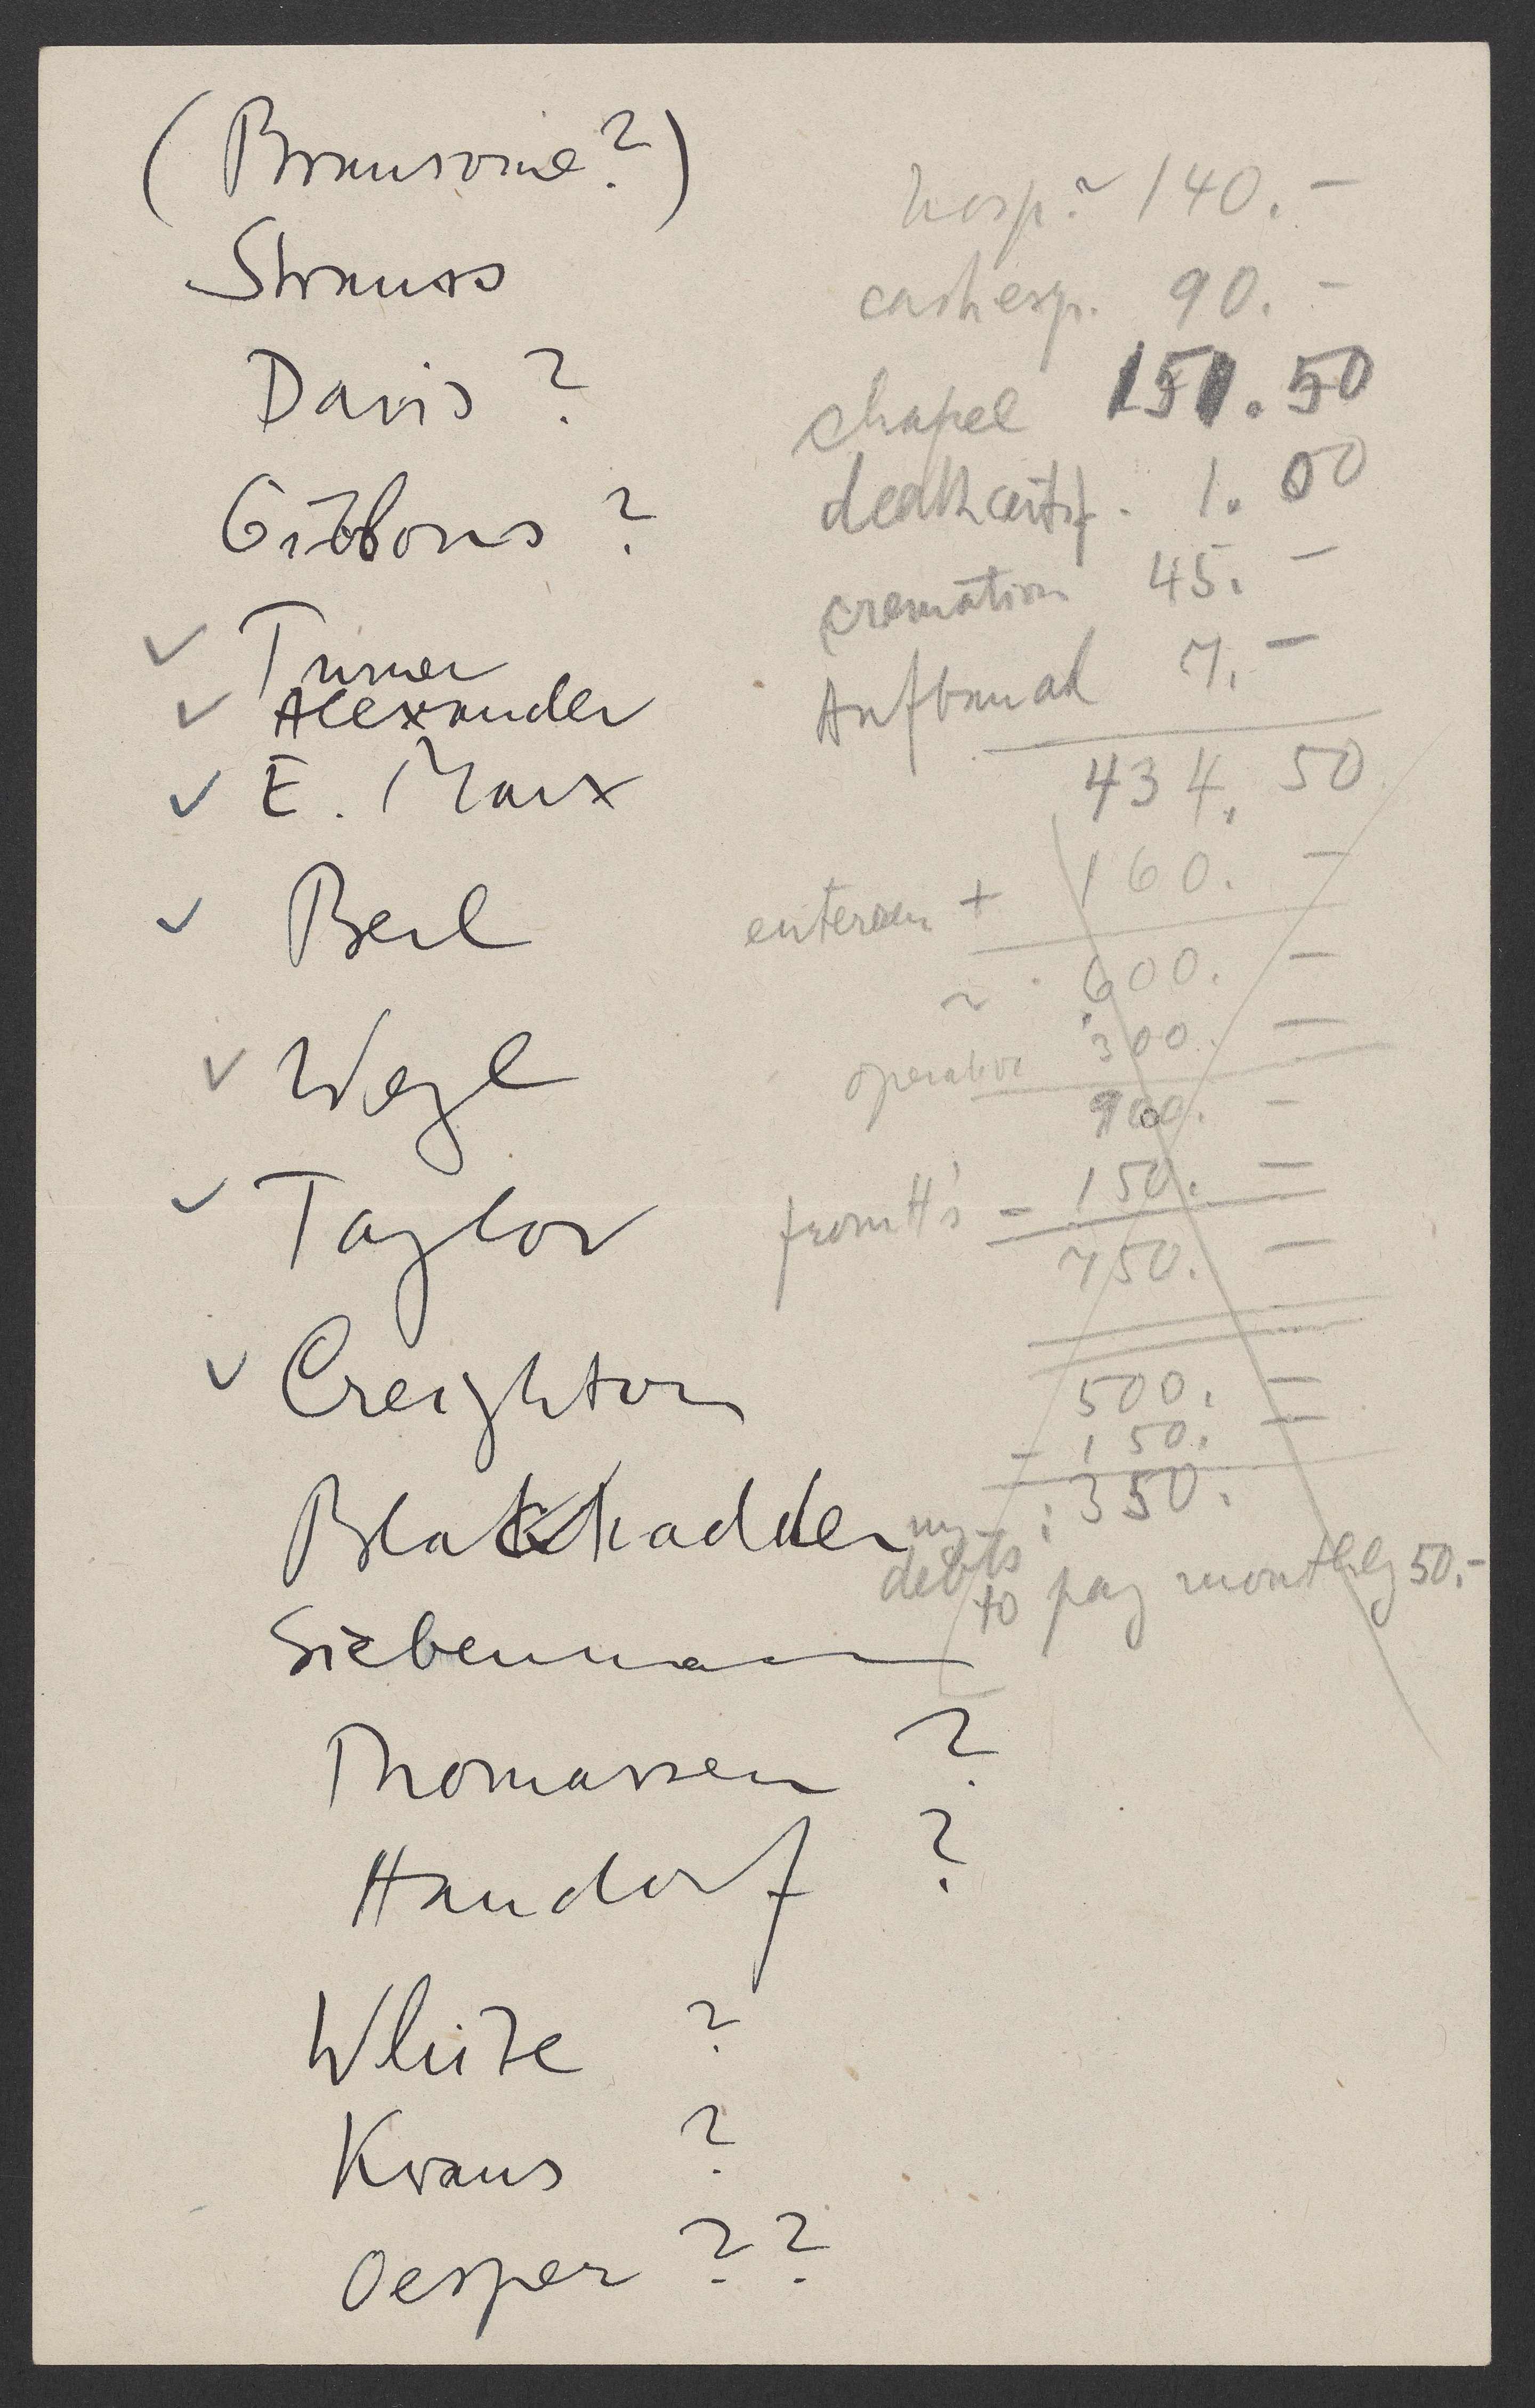 (Bransome?)
Strauss
Davis ?
Gibbons ?
✓ Turner
✓ Alexander
✓ E. Marx
✓ Berl
✓ Weyl
✓ Taylor
✓ Creighton
Blackadder
Siebenmann
Thomassen ?
Handorf ?
White ?
Kraus ?
Oesper ??
hosp. ~ 140.-
cash exp. 90.-
chapel 151.50
death certif. 1.00
cremation 45.-
Aufbau ad 7.-
434.50
+ 160.-
~ 600.-
operation 300.-
900.-
from H's - 150.-
750.-
500.-
- 150.-
350.
my debts
to pay monthly 50.-